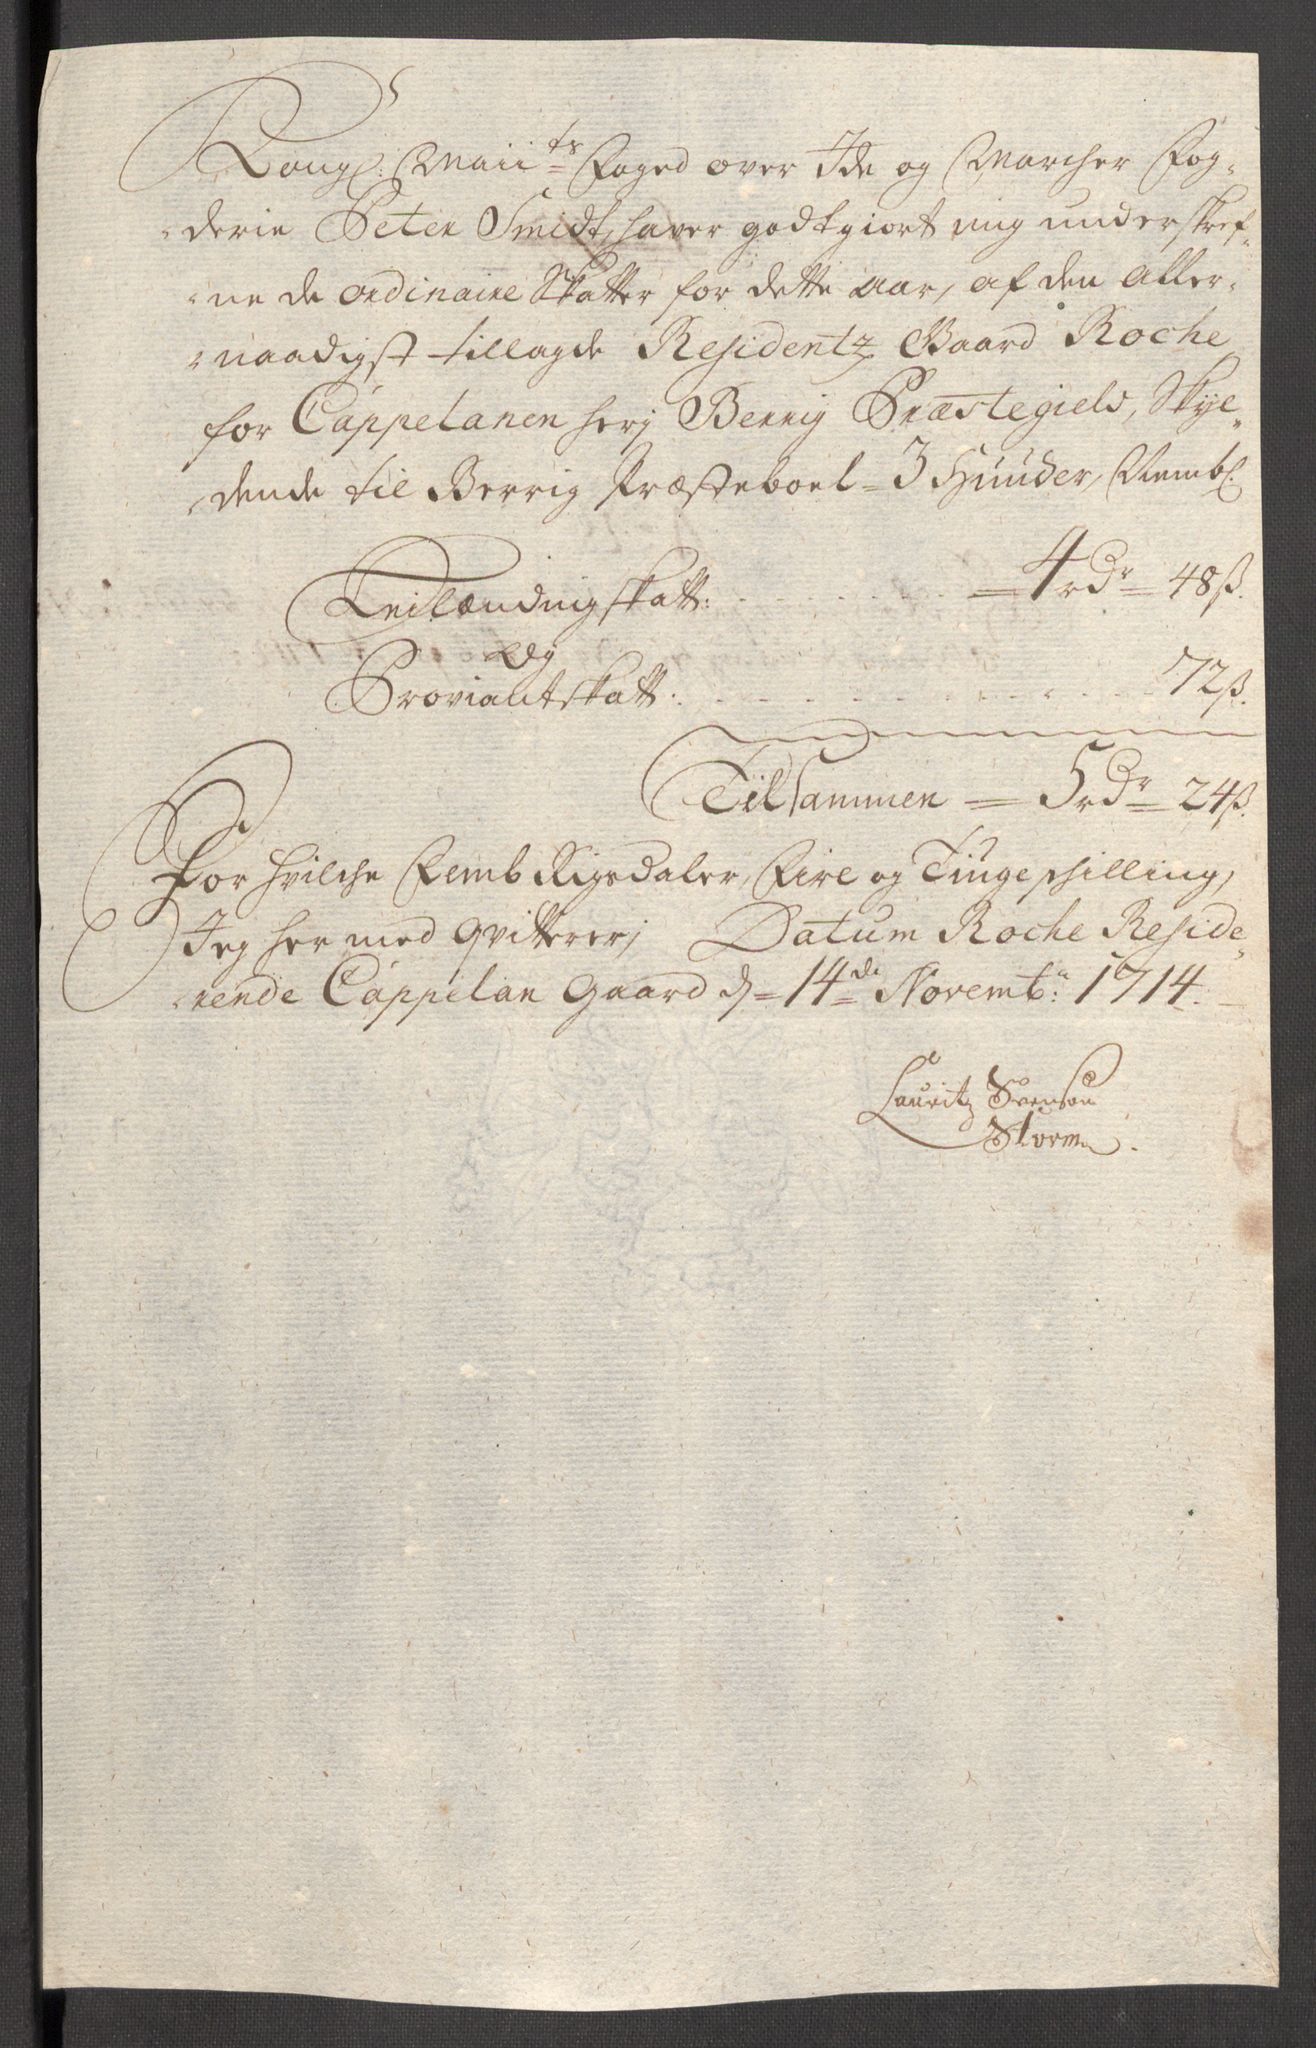 Kongl: Maii^ts Foged over Ide og Marcher Fog-
derie Peter Smidt, haver godtgiort mig underskref-
ne de ordinaire Skatter for dette aar, af den aller-
naadigst tillagde Residentz Gaard Roche
for Cappelanen her j Berrig Præstegield, Skyl-
dende til Berrig Præsteboel = 3 Huuder, Nembl:
Leilændingskatt: = 4 rdr = 48 ß.
Og
Proviantskatt: 72 ß.
Tilsammen = 5 rdr = 24 ß.
For hvilche Femb Rigsdaler, Fire og Tiuge schilling,
Jeg her med qvitterer, Datum Roche Reside-
rende Cappelan Gaard d = 14de Novembr: 1714.
Lauritz Svenson
Storm.